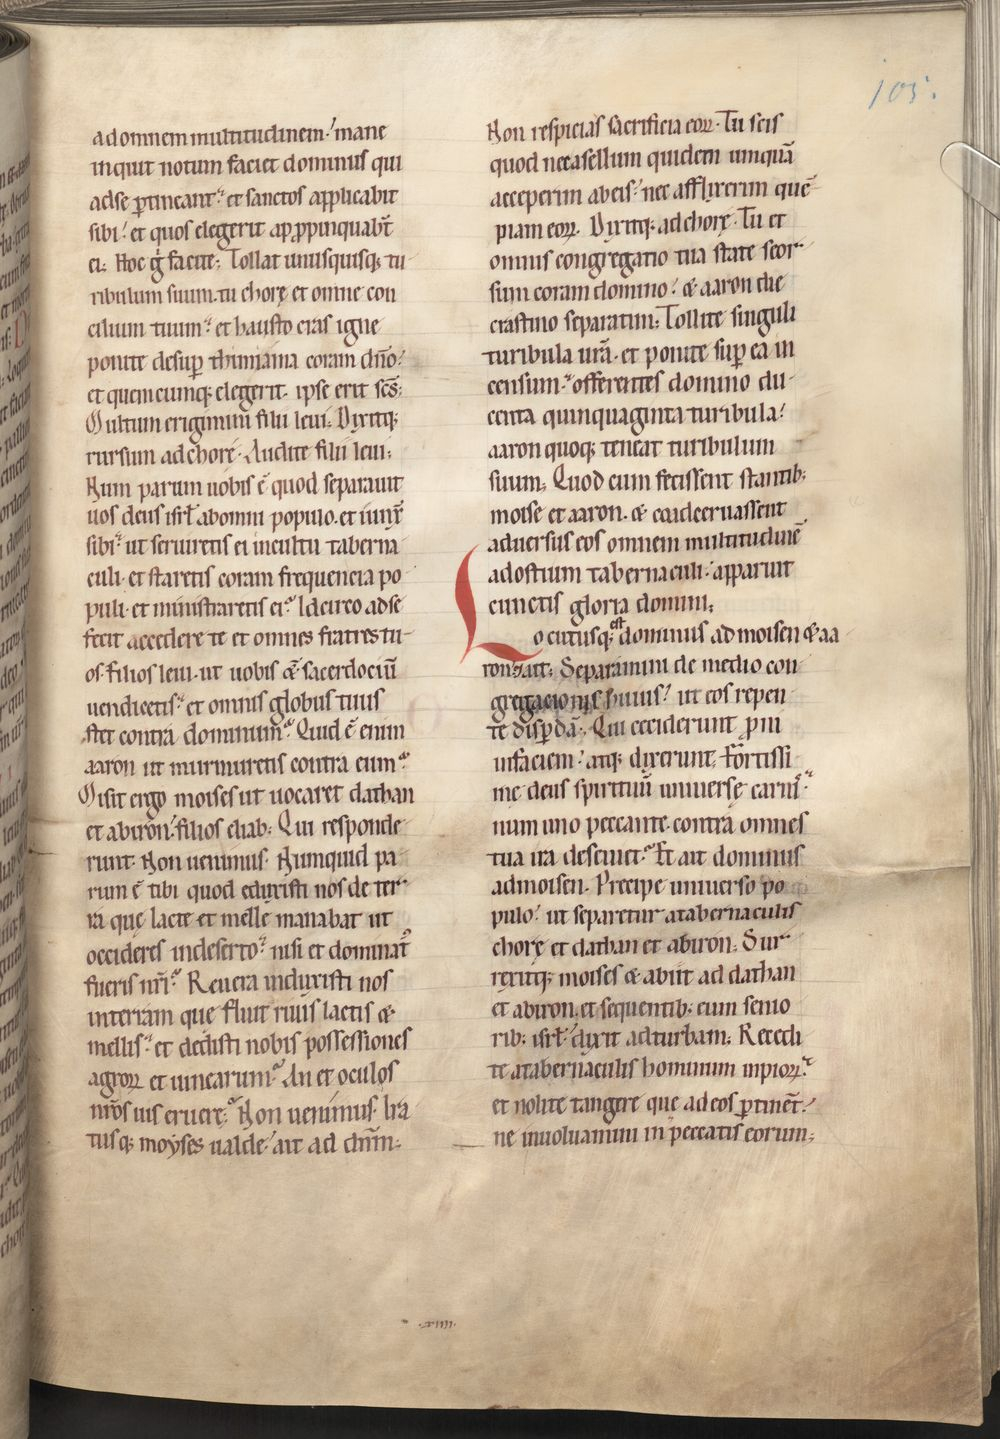 105.
ad omnem multitudinem.' mane
inquit notum faciet dominus qui
ad se ꝑtineant.' et sanctos applicabit
sibi.' et quos elegerit apꝓpinquabt̄
ei. Hoc g̊ facite. Tollat unusquisq; tu
ribulum suum. tu chorę et omne con
cilium tuum.' et hausto cras igne
ponite desuꝑ thimiama coram dn̄o.'
et quemcumq; elegerit. ipse erit sc̄s.
Multum erigimini filii leui. Dixitq;
rursum ad chore. Audite filii leui.
Num parum uobis ē quod separauit
uos deus isrł ab omni populo. et iunx̄
sibi.' ut seruiretis ei in cultu taberna
culi. et staretis coram frequencia po
puli. et ministraretis ei.' Idcirco ad se
fecit accedere te et omnes fratres tu
os filios leui. ut uobis & sacerdociū
uendicetis.' et omnis globus tuus
stet contra dominum.' Quid ē enim
aaron ut murmuretis contra eum.'
Misit ergo moises ut uocaret dathan
et abiron.' filios eliab. Qui responde
runt. Non uenimus. Numquid pa
rum ē tibi quod eduxisti nos de ter
ra que lacte et melle manabat ut
occideres in deserto.' nisi et dominat᷒
fueris nr̄i.' Reuera induxisti nos
in terram que fluit riuis lactis &
mellis.' et dedisti nobis possessiones
agroꝝ et uinearum.' An et oculos
nr̄os uis eruere.' Non uenimus. Ira
tusq; moyses ualde.' ait ad dnm̄.
Non respicias sacrificia eoꝝ. Tu scis
quod nec asellum quidem umquā
acceperim ab eis.' nec afflixerim quē
piam eoꝝ. Dixitq; ad chorę. Tu et
omnis congregatio tua state seor
sum coram domino.' & aaron die
crastino separatim. Tollite singuli
turibula ura͞. et ponite suꝑ ea in
censum.' offerentes domino du
centa quinquaginta turibula.'
aaron quoq; teneat turibulum
suum. Quod cum fecissent stantib;
moise et aaron. & coaceruassent
aduersus eos omnem multitudinē
ad ostium tabernaculi.' apparuit
cunctis gloria domini.
Locutusq; est dominus ad moisen & aa
ron. ait. Separamini de medio con
gregacionis huius.' ut eos repen
te disꝑdā. Qui ceciderunt ꝓni
in faciem.' atq; dixerunt. Fortissi
me deus spirituū uniuersę carnis.'
num uno peccante. contra omnes
tua ira deseuiet.' Et ait dominus
ad moisen. Precipe uniuerso po
pulo.' ut separetur a tabernaculis
chorę et dathan et abiron. Sur
rexitq; moises & abiit ad dathan
et abiron. et sequentib; eum senio
rib; isrł.' dixit ad turbam. Recedi
te a tabernaculis hominum impioꝝ.'
et nolite tangere que ad eos ꝑtinēt.'
ne inuoluamini in peccatis eorum.